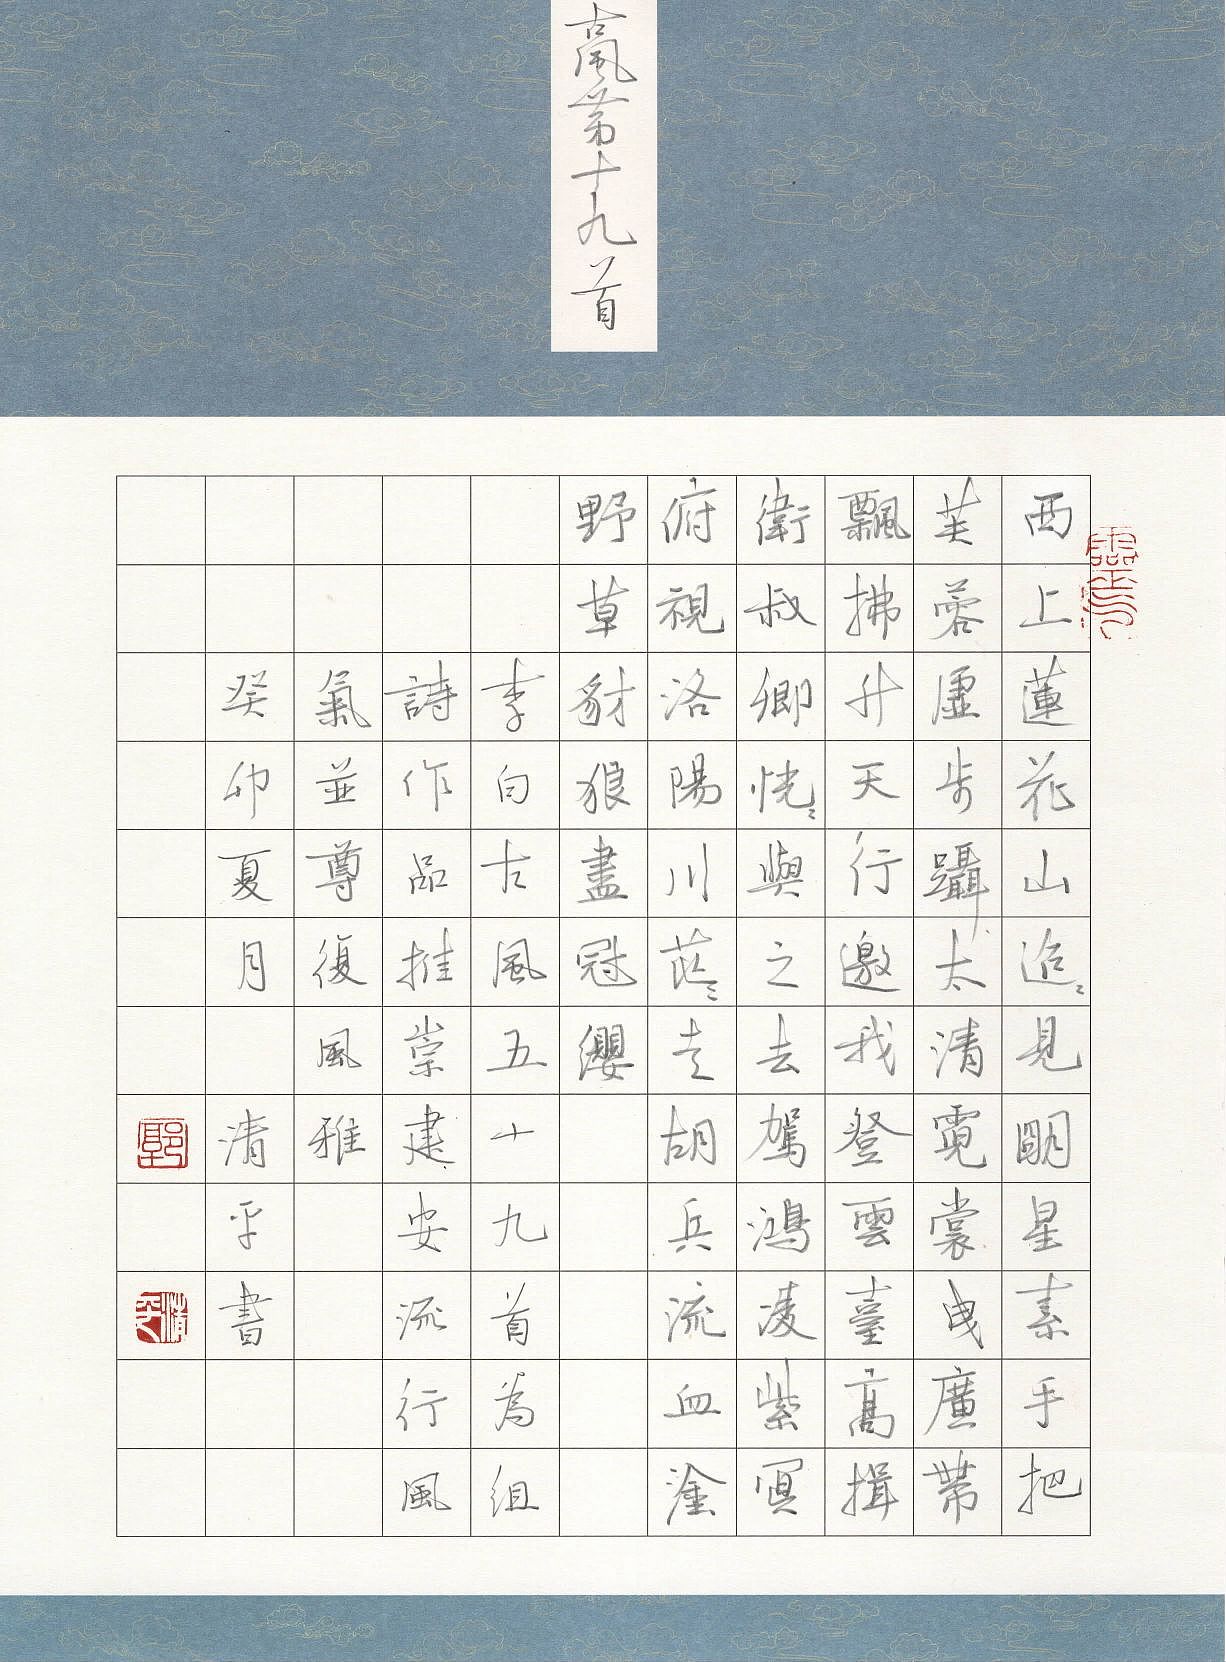 古風苐十九首
西上蓮花山迢〻見明星素手把
芙蓉虛步躡太清霓裳曳廣帶
飄拂升天行邀我登雲臺高揖
衛叔卿恍〻與之去駕鴻凌紫冥
俯視洛陽川茫〻走胡兵流血塗
野草豺狼盡冠纓
李白古風五十九首為組
詩作品推崇建安流行風
氣並尊復風雅
癸卯夏月 清平書
清平